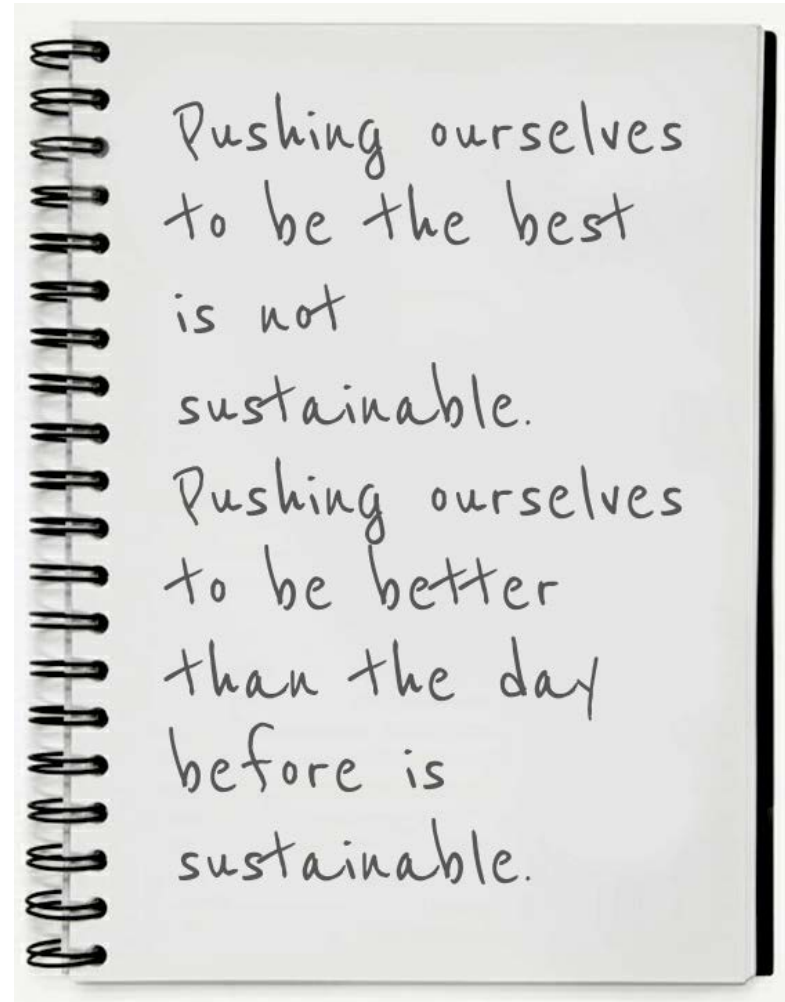 Pushing ourselves
to be the best
is not
sustainable.
Pushing ourselves
to be better
than the day
before is
sustainable.